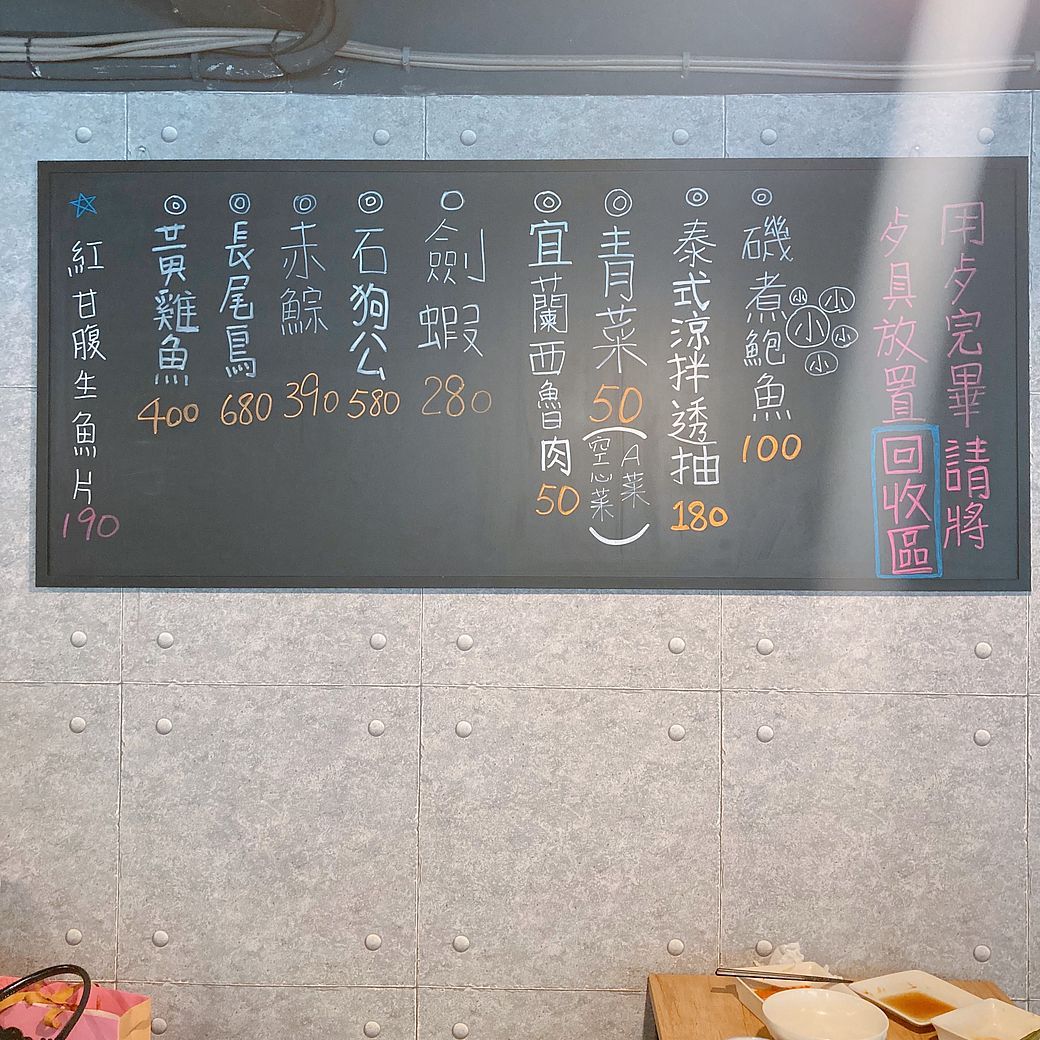 用歺完畢請將
歺具放置回收區
磯煮鮑魚 100
小小小小小
泰式涼拌透抽 180
青菜 50
(A菜
空心菜)
宜蘭西魯肉 50
劍蝦 280
石狗公 580
赤鯮 390
長尾鳥 680
黃雞魚 400
紅甘腹生魚片 190